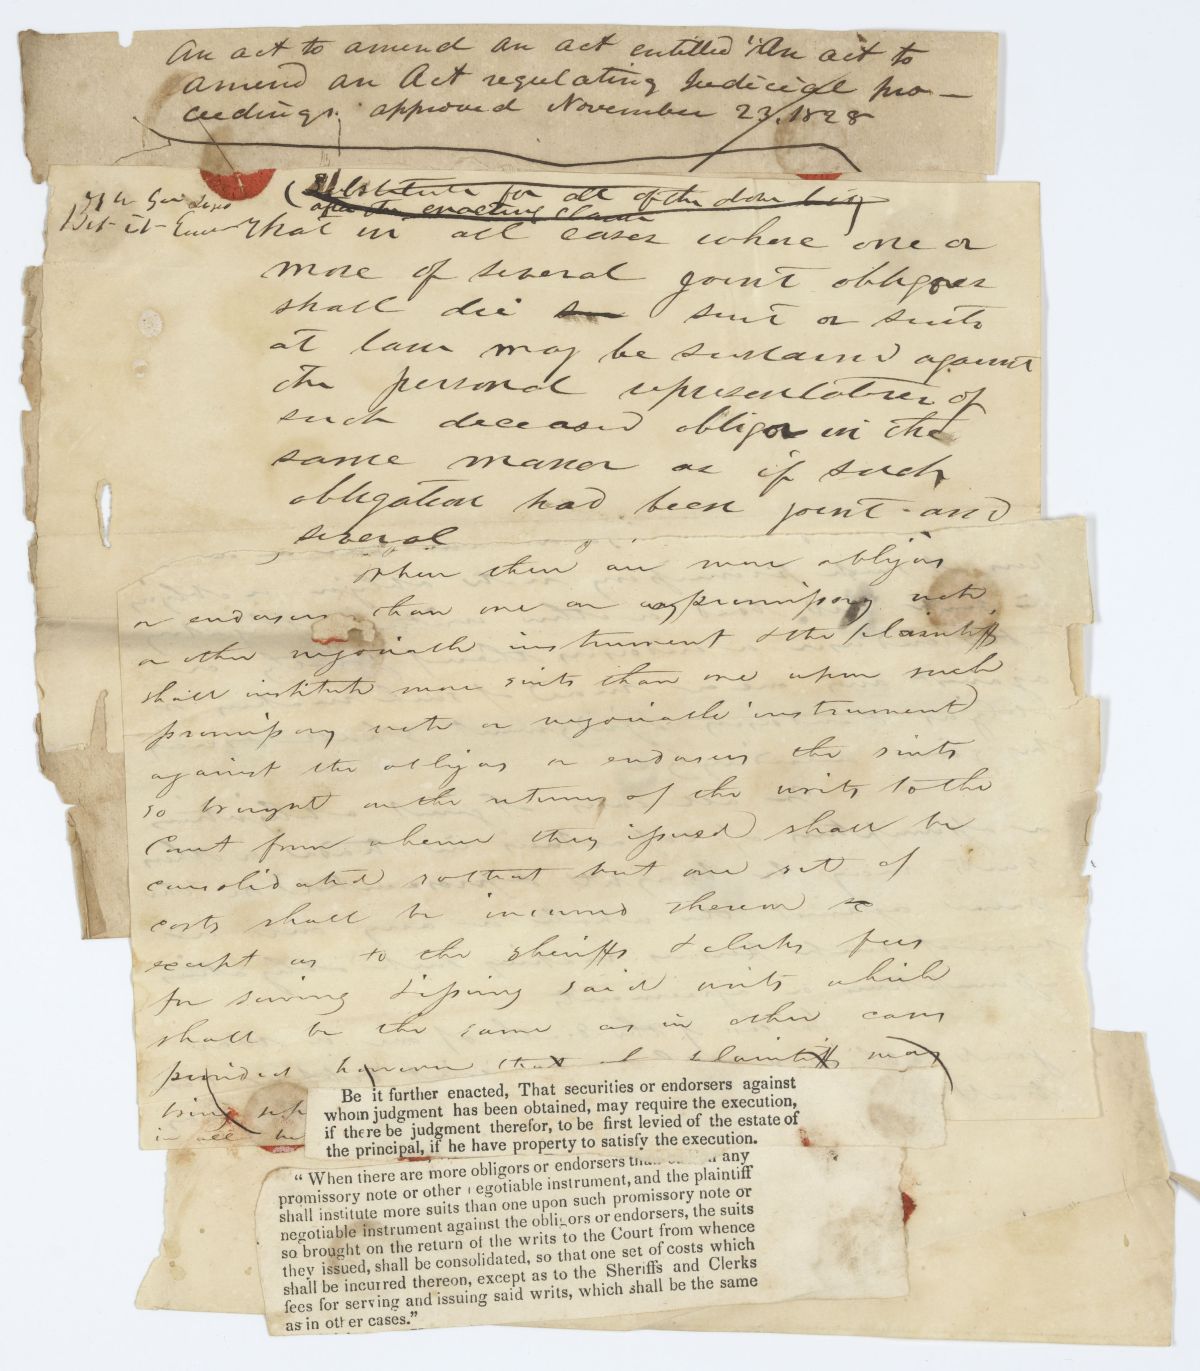 An act to amend an act entitled "An act to
amend an Act regulating Judicial pro-
ceedings. approved November 23. 1828
(Substitute for all of the above bill
after the enacting clause
Be it
That in all cases where one or
more of several joint obligors
shall die suit or suits
at law may be sustained against
the personal representatives of
such deceased obligor in the
same maner as if such
obligation had been joint and
several
When there are more obligors
or endorsers than one on any promissory note
or other negotiable instrument & the plaintiff
shall institute more suits than one upon such
promissory note or negotiable instrument
against the obligors or endorsers the suits
so brought on the return of the writs to the
Court from whence they issued shall be
consolidated so that but one set of
costs shall be incurred thereon
except as to the Sheriffs & clerks fees
for serving & issuing said writs which
shall be the same as in other cases
provided however that plaintiff may
bring
in all
Be it further enacted, That securities or endorsers against
whom judgment has been obtained, may require the execution,
if there be judgment therefor, to be first levied of the estate of
the principal, if he have property to satisfy the execution.
"When there are more obligors or endorsers any
promissory note or other egotiable instrument, and the plaintiff
shall institute more suits than one upon such promissory note or
negotiable instrument against the obligors or endorsers, the suits
so brought on the return of the writs to the Court from whence
they issued, shall be consolidated, so that one set of costs which
shall be incurred thereon, except as to the Sheriffs and Clerks
fees for serving and issuing said writs, which shall be the same
as in other cases."